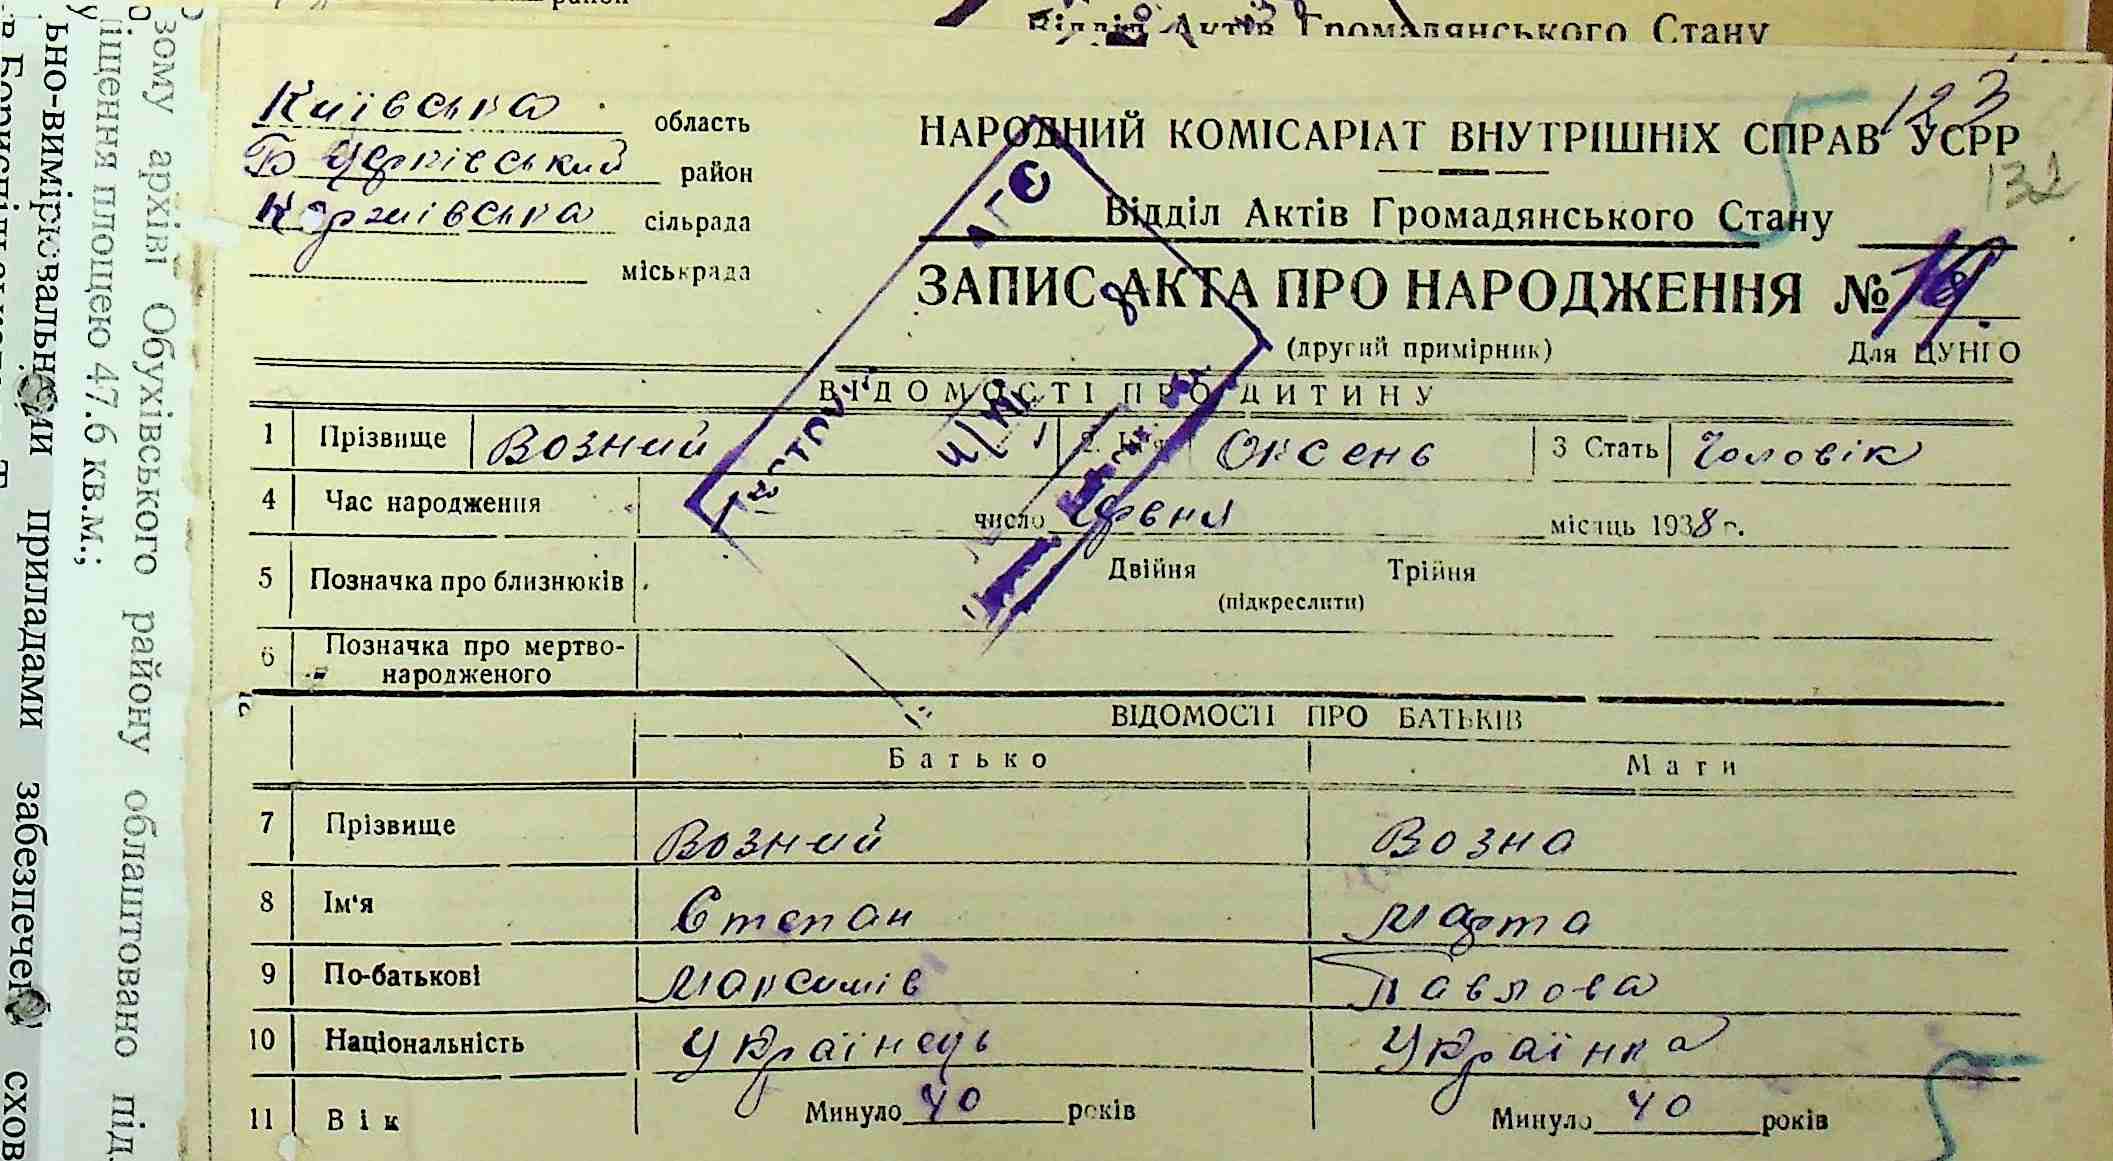 район
Відділ Актів Громадянського Стану
зому архіві Обухівського району облаштовано під
іщення площею 47.6 кв.м.;
ьно-вимірювальними приладами забезпечен схов
Київська область
Б Церківський район
Коржівська сільрада
міськрада
123
132
5
НАРОДНИЙ КОМІСАРІАТ ВНУТРІШНІХ СПРАВ УСРР
Відділ Актів Громадянського Стану
ЗАПИС АКТА ПРО НАРОДЖЕННЯ № 19.
(другий примірник) Для ЦУНГО
ВІДОМОСТІ ПРО ДИТИНУ
1 Прізвище Возний 2. Ім'я Оксень 3 Стать Чоловік
4 Час народження число червня місяць 1938 г.
5 Позначка про близнюків Двійня Трійня
(підкреслити)
6 Позначка про мертво-
народженого
ВІДОМОСТІ ПРО БАТЬКІВ
Батько Мати
7 Прізвище Возний Возна
8 Ім'я Степан Марта
9 По-батькові Максимів Павлова
10 Національність Українець Українка
11 Вік Минуло 40 років Минуло 40 років
5